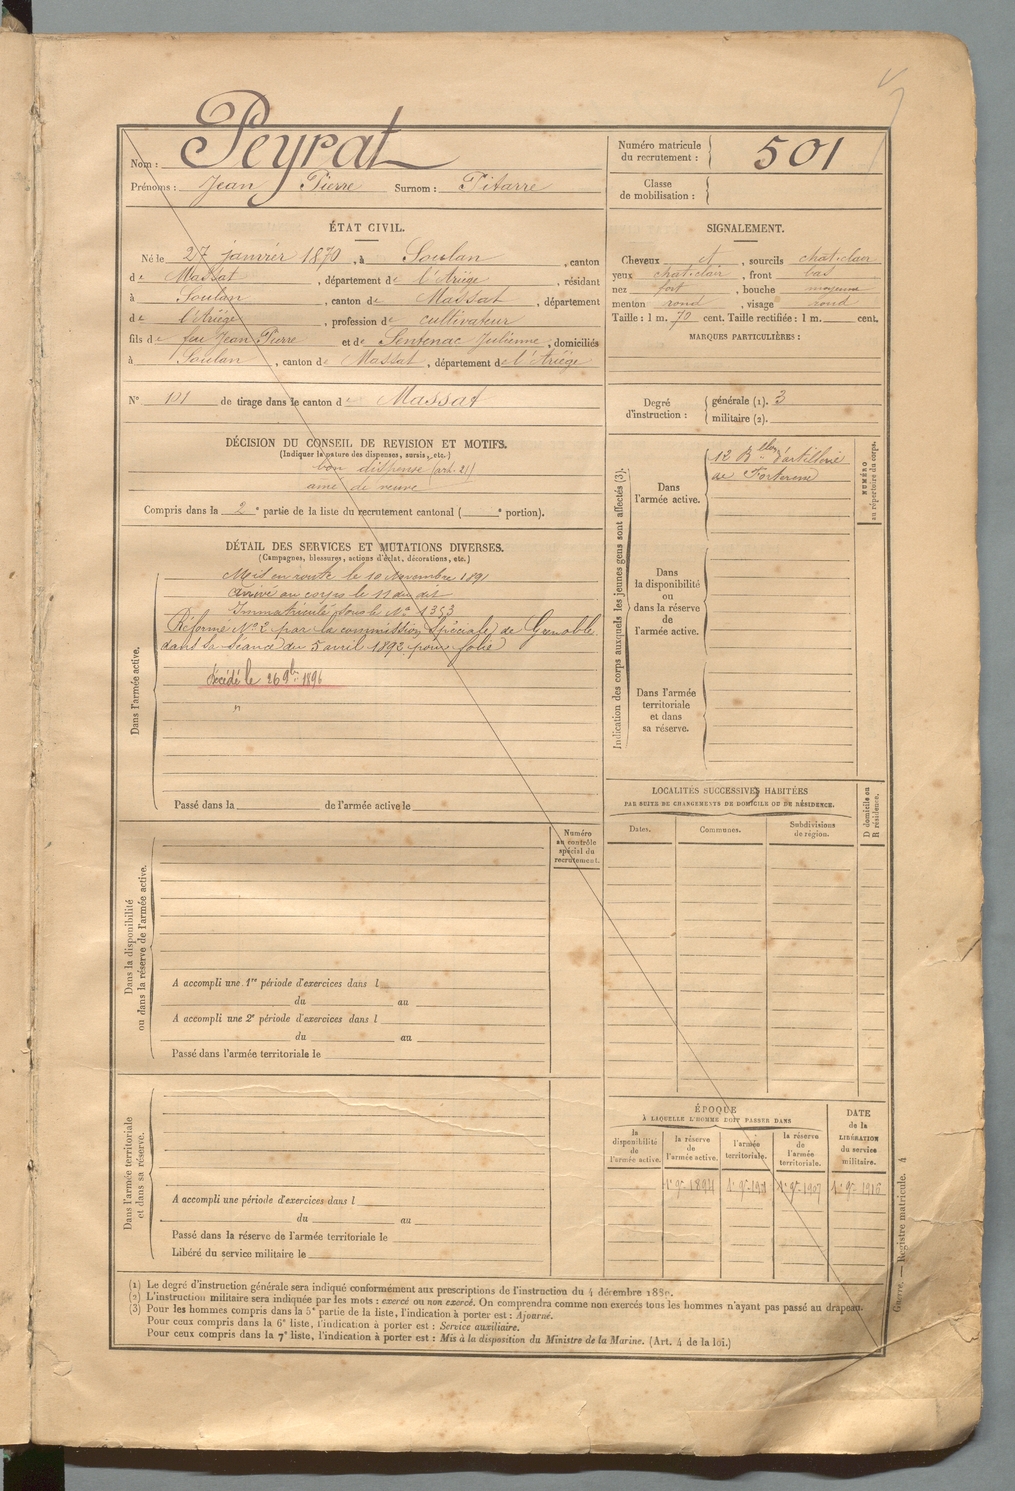 Nom : Peyrat
Prénoms : Jean Pierre Surnom : Pitarre
Numéro matricule
du recrutement : 501
Classe
de mobilisation :
ÉTAT CIVIL.
Né le 27 janvier 1870, à Soulan, canton
de Massat, département de l'Ariège, résidant
à Soulan, canton de Massat, département
de l'Ariège, profession de cultivateur
fils de feu Jean Pierre et de Sentenac Julienne, domiciliés
à Soulan, canton de Massat, département de l'Ariège
N° 101 de tirage dans le canton de Massat
SIGNALEMENT.
Cheveux et, sourcils chat. clair
yeux chat. clair, front bas
nez fort, bouche moyenne
menton rond, visage rond
Taille : 1 m. 70 cent. Taille rectifiée : 1 m. cent.
MARQUES PARTICULIÈRES :
Degré
d'instruction :
générale (1). 3
militaire (2).
DÉCISION DU CONSEIL DE REVISION ET MOTIFS.
(Indiquer la nature des dispenses, sursis, etc.)
bon dispensé (art. 21)
aîné de veuve
Compris dans la 2e partie de la liste du recrutement cantonal ( e portion).
DÉTAIL DES SERVICES ET MUTATIONS DIVERSES.
(Campagnes, blessures, actions d'éclat, décorations, etc.)
Dans l'armée active.
Mis en route le 10 Novembre 1891
Arrivé au corps le 11 du dit
Immatriculé sous le N° 1353
Réformé N° 2 par la commission Spéciale de Grenoble
dans sa séance du 5 avril 1892 pour folie
Décédé le 26 9bre 1896
Passé dans la de l'armée active le
Indication des corps auxquels les jeunes gens sont affectés (3).
NUMÉRO
au répertoire du corps.
Dans
l'armée active.
12 Bllon d'artillerie
de Forteresse
Dans
la disponibilité
ou
dans la réserve
de
l'armée active.
Dans l'armée
territoriale
et dans
sa réserve.
LOCALITÉS SUCCESSIVES HABITÉES
PAR SUITE DE CHANGEMENTS DE DOMICILE OU DE RÉSIDENCE.
D domicile ou
R résidence.
Dates. Communes. Subdivisions
de région.
Dans la disponibilité
ou dans la réserve de l'armée active.
Numéro
au contrôle
spécial du
recrutement.
A accompli une 1re période d'exercices dans l
du au
A accompli une 2e période d'exercices dans l
du au
Passé dans l'armée territoriale le
Dans l'armée territoriale
et dans sa réserve.
A accompli une période d'exercices dans l
du au
Passé dans la réserve de l'armée territoriale le
Libéré du service militaire le
ÉPOQUE
À LAQUELLE L'HOMME DOIT PASSER DANS
la
disponibilité
de
l'armée active.
la réserve
de
l'armée active.
l'armée
territoriale.
la réserve
de
l'armée
territoriale.
DATE
de la
LIBÉRATION
du service
militaire.
1er 9bre 1894 1er 9bre 1901 1er 9bre 1907 1er 9bre 1916
(1) Le degré d'instruction générale sera indiqué conformément aux prescriptions de l'instruction du 4 décembre 1889.
(2) L'instruction militaire sera indiquée par les mots : exercé ou non exercé. On comprendra comme non exercés tous les hommes n'ayant pas passé au drapeau.
(3) Pour les hommes compris dans la 5e partie de la liste, l'indication à porter est : Ajourné.
Pour ceux compris dans la 6e liste, l'indication à porter est : Service auxiliaire.
Pour ceux compris dans la 7e liste, l'indication à porter est : Mis à la disposition du Ministre de la Marine. (Art. 4 de la loi.)
Guerre. — Registre matricule. 4